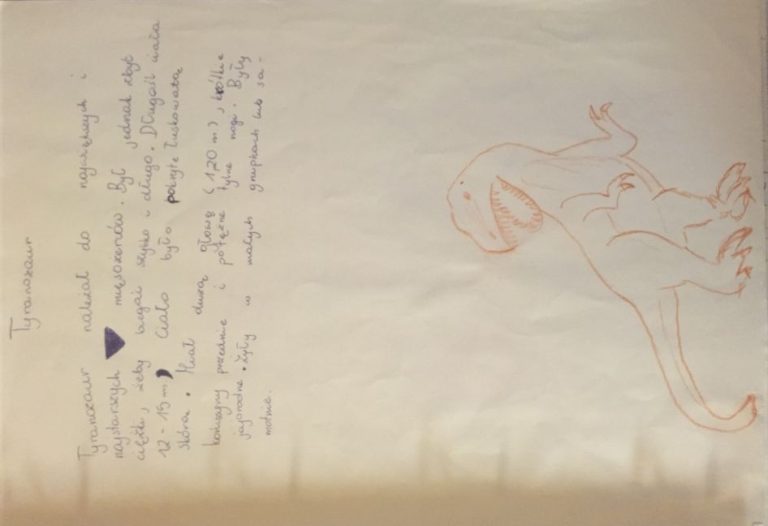 Tyranozaur
Tyranozaur należał do największych i
najstarszych mięsożerców. Był jednak zbyt
ciężki, żeby biegać szybko i długo. Długość ciała
12-15 m, Ciało było pokryte łuskowatą
skóra. Miał dużą głowę (1,20 m), krótkie
kończyny przednie i potężne tylne nogi. Były
jajorodne. Żyły w małych grupkach lub sa-
motnie.